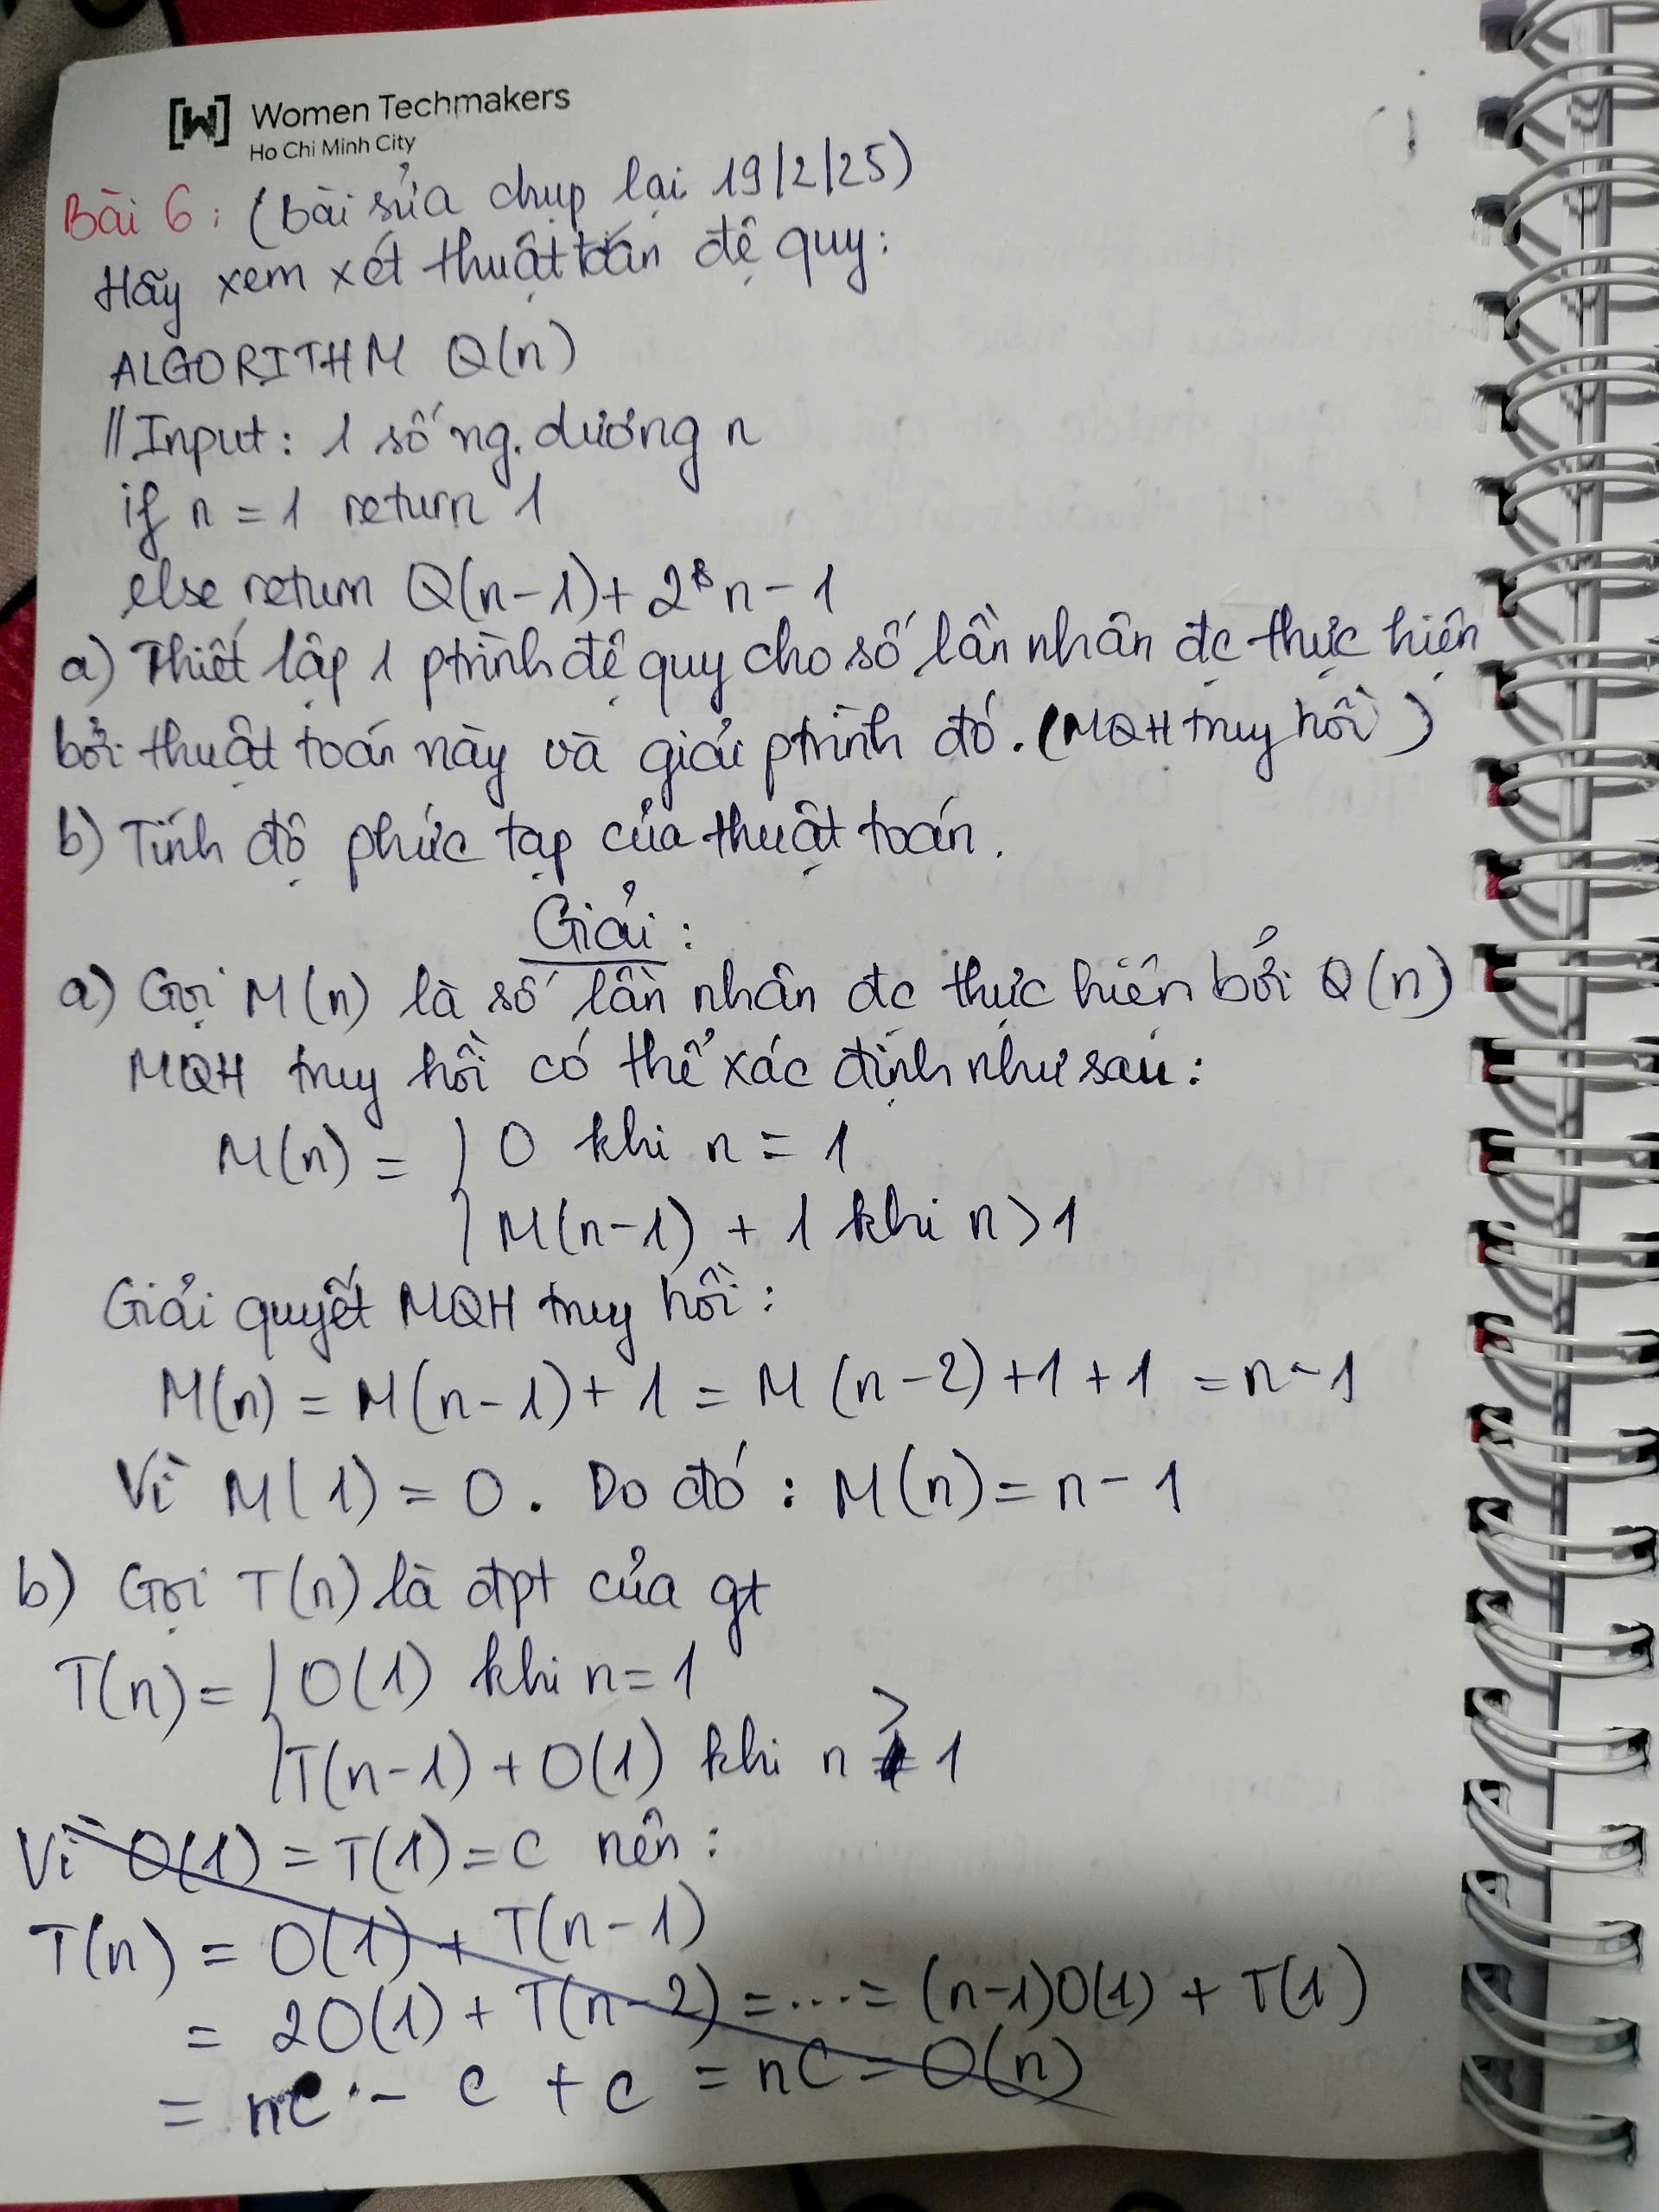 [W] Women Techmakers
Ho Chi Minh City
Bài 6: (Bài sửa chụp lại 19/2/25)
Hãy xem xét thuật toán đệ quy:
ALGORITHM Q(n)
//Input: 1 số ng. dương n
if n = 1 return 1
else return Q(n-1) + 2*n - 1
a) Thiết lập 1 ptrình đệ quy cho số lần nhân đc thực hiện
bởi thuật toán này và giải ptrình đó. (MQH truy hồi)
b) Tính độ phức tạp của thuật toán.
Giải:
a) Gọi M(n) là số lần nhân đc thực hiện bởi Q(n)
MQH truy hồi có thể xác định như sau:
M(n) = { 0 khi n = 1
M(n-1) + 1 khi n > 1
Giải quyết MQH truy hồi:
M(n) = M(n-1) + 1 = M(n-2) + 1 + 1 = n - 1
Vì M(1) = 0. Do đó: M(n) = n - 1
b) Gọi T(n) là đpt của gt
T(n) = { O(1) khi n = 1
T(n-1) + O(1) khi n > 1
Vì O(1) = T(1) = C nên:
T(n) = O(1) + T(n-1)
= 2O(1) + T(n-2) = ... = (n-1)O(1) + T(1)
= nC - C + C = nC = O(n)